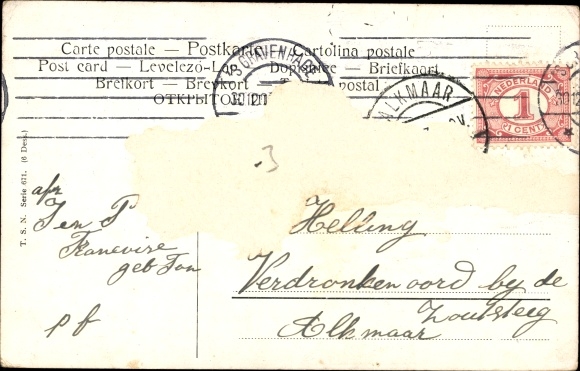 Carte postale — Postkarte — Cartolina postale
Post card — Levelezö-L
Briefkaart
Brefkort — Brevkort
postal
ОТКРЫТО
'S GRAVENHA
30 12
ALKMAAR
NEDERLAND
1
CENT
T. S. N. Serie 611. (6 Dess.)
3
afz
J en P
geb Ton
p f
Helling
Verdronkenoord by de
Zoutsteeg
Alkmaar